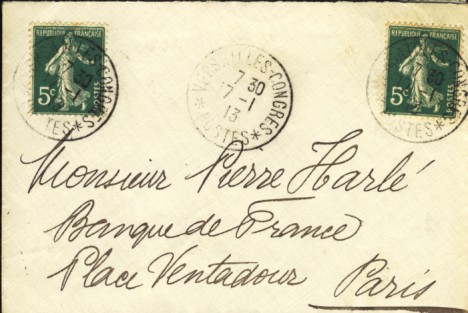 REPUBLIQUE FRANÇAISE
5c
POSTES
VERSAILLES-CONGRES
7 30
17-1
13
*POSTES*
REPUBLIQUE FRANÇAISE
5c
POSTES
Monsieur Pierre Harlé
Banque de France
Place Ventadour Paris